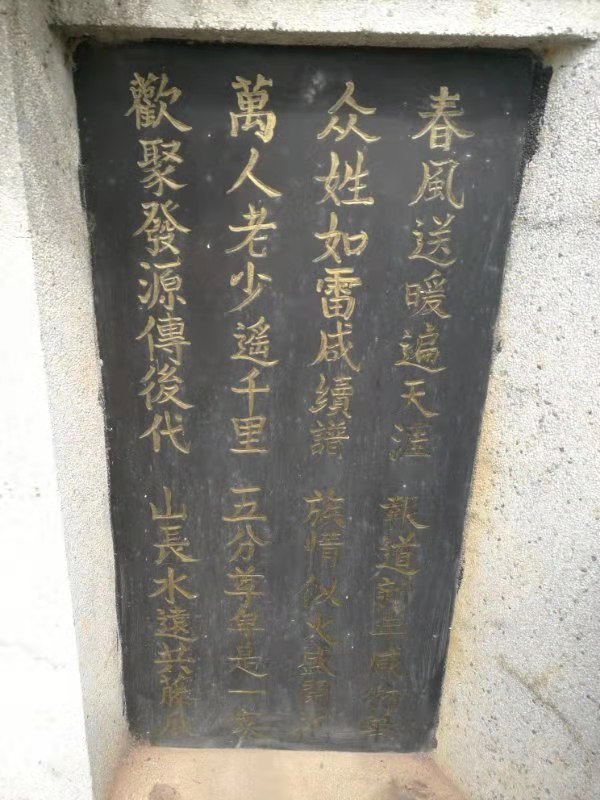 春風送暖遍天涯 報道
众姓如雷咸續譜 族情似火盛
萬人老少遥千里 五分尊是一家
歡聚發源傳後代 山長水遠共藤瓜